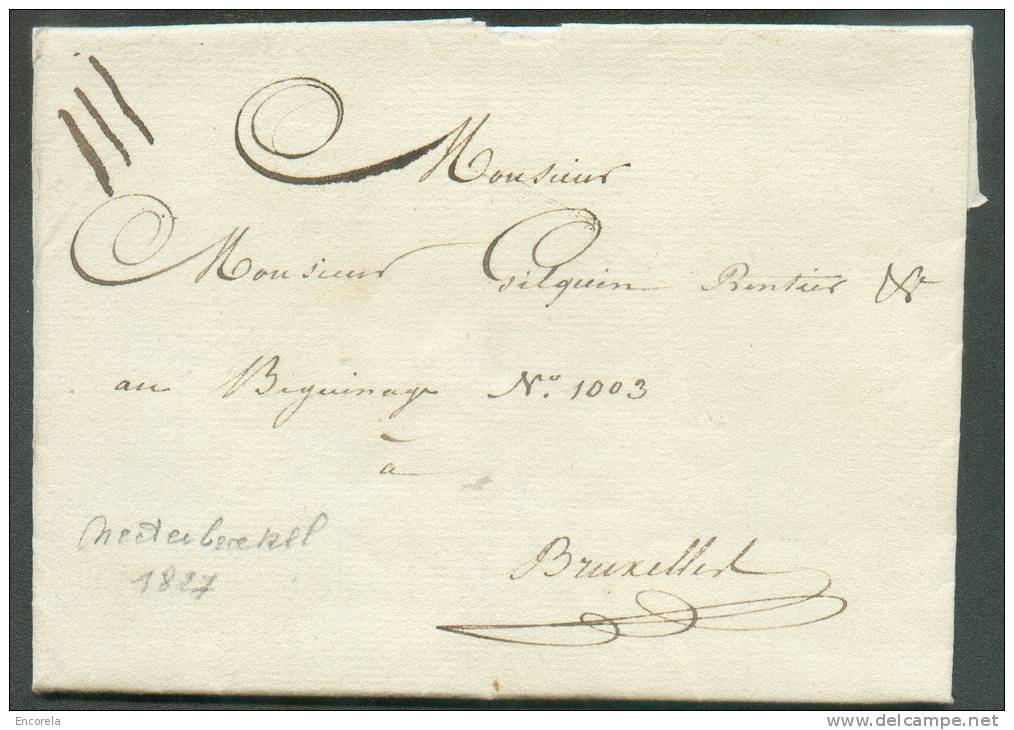 III
Monsieur
Monsieur Gilquin Rentier &r
au Beguinage No. 1003
à
Bruxelles
1827
Encorela
www.delcampe.net